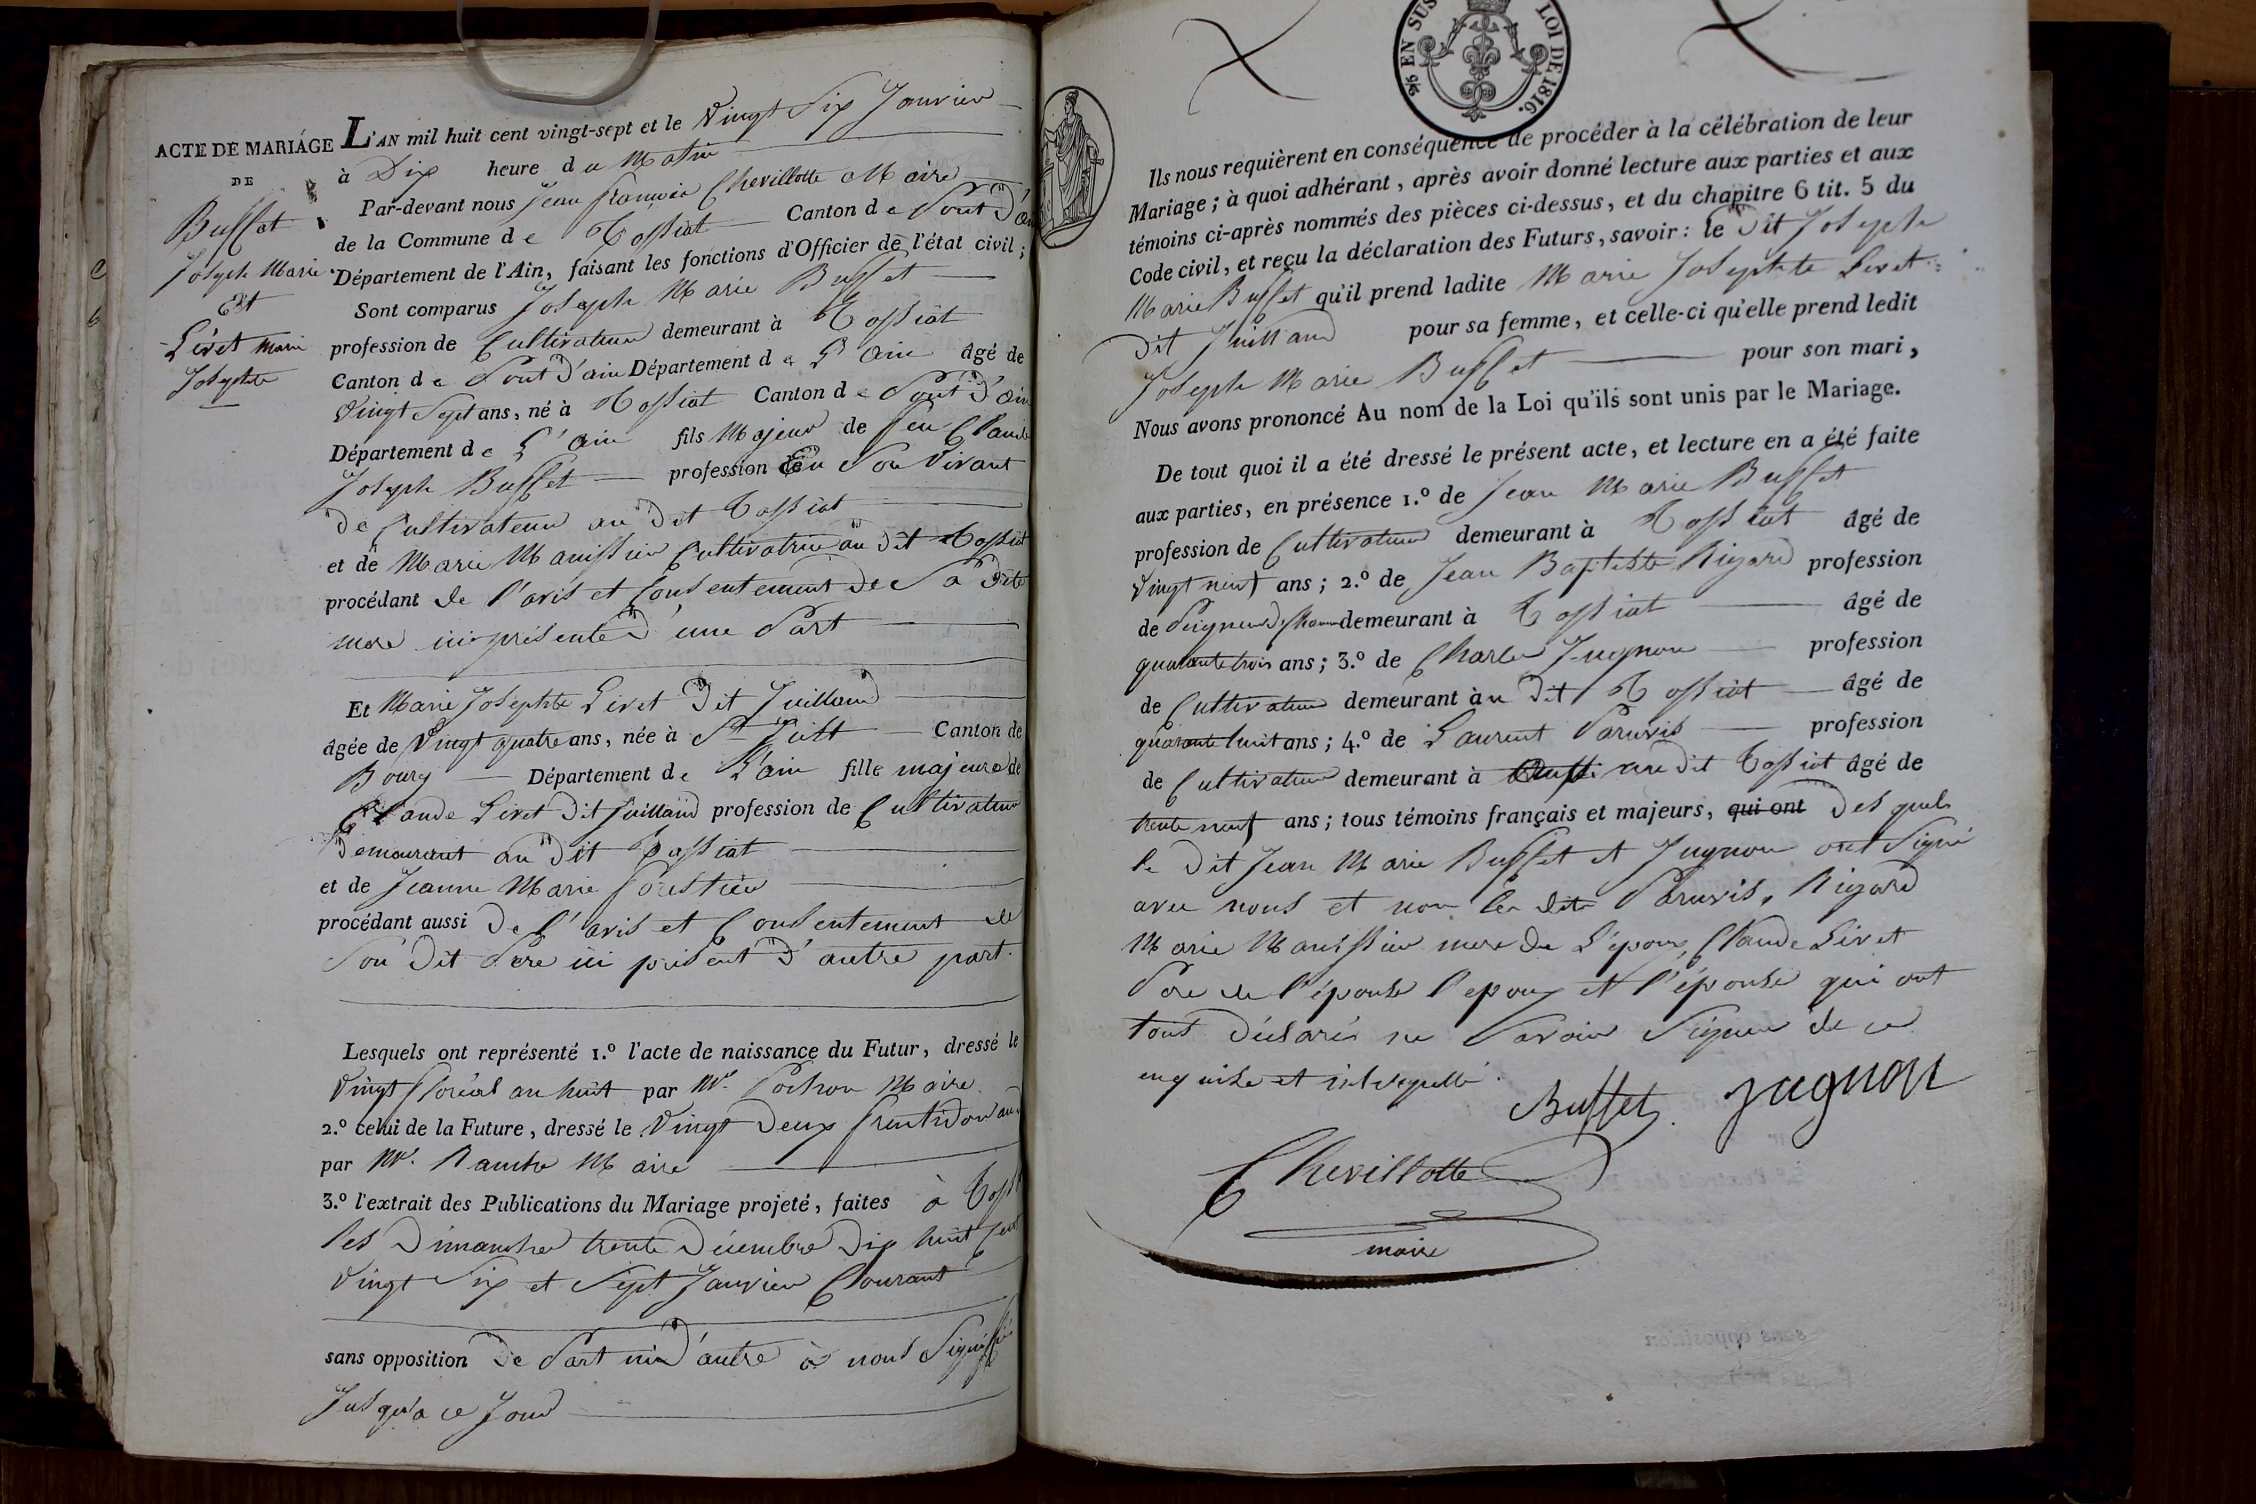 ACTE DE MARIAGE
DE
Buffet
Joseph Marie
Et
Livet Marie
Josephte
L'AN mil huit cent vingt-sept et le Vingt Six Janvier
à Dix heure du Matin
Par-devant nous Jean françois Chevillotte Maire
de la Commune de Tossiat Canton de Pont d'ain
Département de l'Ain, faisant les fonctions d'Officier de l'état civil;
Sont comparus Joseph Marie Buffet
profession de Cultivateur demeurant à Tossiat
Canton de Pont d'ain Département de L'Ain âgé de
Vingt Sept ans, né à Tossiat Canton de Pont d'ain
Département de L'Ain fils Majeur de feu Claude
Joseph Buffet profession de En Son Vivant
de Cultivateur au dit Tossiat
et de Marie Manissier Cultivatrice au dit Tossiat
procédant de l'avis et Consentement de Sa dite
mere ici présente d'une Part
Et Marie Josephte Livet dit Juilland
âgée de Vingt quatre ans, née à St Just Canton de
Bourg Département de L'ain fille majeure de
Claude Livet dit Juilland profession de Cultivateur
demeurant au dit Tossiat
et de Jeanne Marie Forestier
procédant aussi de l'avis et Consentement de
Son dit Pere ici présent d'autre part.
Lesquels ont représenté 1.º l'acte de naissance du Futur, dressé le
Vingt floréal an huit par Mr. Pochon Maire
2.º celui de la Future, dressé le Vingt deux fructidor an
par Mr. Maire
3.º l'extrait des Publications du Mariage projeté, faites à Toss
les Dimanches trente Décembre Dix huit Cent
Vingt Six et Sept Janvier Courant
sans opposition de Part ni d'autre à nous Signifiée
Jusqu'a ce Jour
96 EN SUS LOI DE 1816.
Ils nous requièrent en conséquence de procéder à la célébration de leur
Mariage; à quoi adhérant, après avoir donné lecture aux parties et aux
témoins ci-après nommés des pièces ci-dessus, et du chapitre 6 tit. 5 du
Code civil, et reçu la déclaration des Futurs, savoir: le dit Joseph
Marie Buffet qu'il prend ladite Marie Josephte Livet
dit Juilland pour sa femme, et celle-ci qu'elle prend ledit
Joseph Marie Buffet pour son mari,
Nous avons prononcé Au nom de la Loi qu'ils sont unis par le Mariage.
De tout quoi il a été dressé le présent acte, et lecture en a été faite
aux parties, en présence 1.º de Jean Marie Buffet
profession de Cultivateur demeurant à Tossiat âgé de
Vingt neuf ans; 2.º de Jean Baptiste Rigard profession
de Peigneur de Chanvre demeurant à Tossiat âgé de
quarante trois ans; 3.º de Charles Jugnon profession
de Cultivateur demeurant au dit Tossiat âgé de
quarante huit ans; 4.º de Laurent Paruvis profession
de Cultivateur demeurant à aussi au dit Tossiat âgé de
trente neuf ans; tous témoins français et majeurs, qui ont des quels
le dit Jean Marie Buffet et Jugnon ont Signé
avec nous et non les dits Paruvis, Rigard
Marie Manissier mere de L'époux, Claude Livet
Pere de l'épouse l'epoux et l'épouse qui ont
tous déclaré ne Savoir Signer de ce
enquise et interpellé.
Buffet. Jugnon
Chevillotte
maire